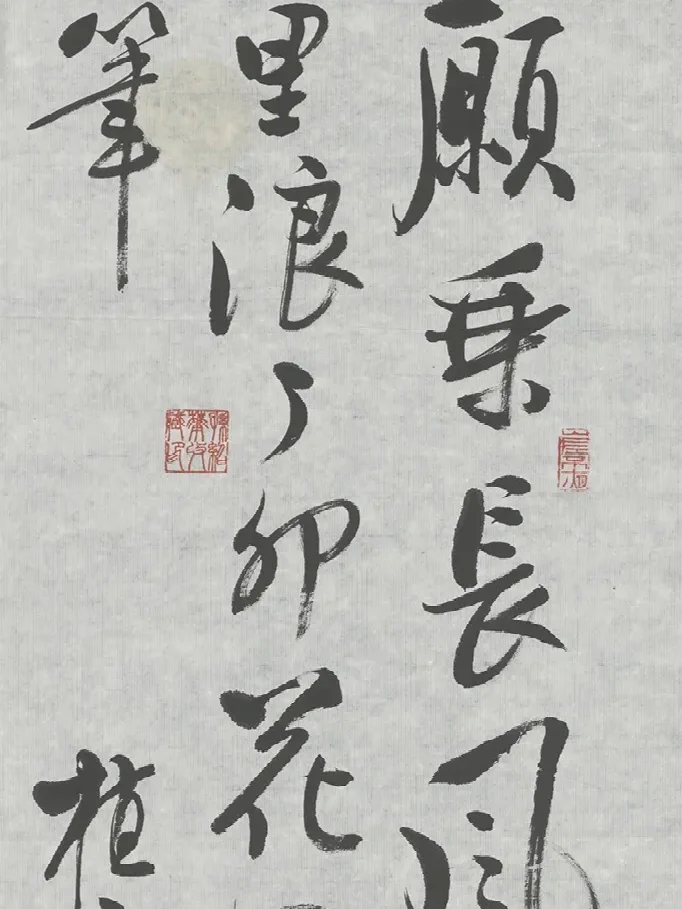 願乘長風
里浪丁卯花
筆植